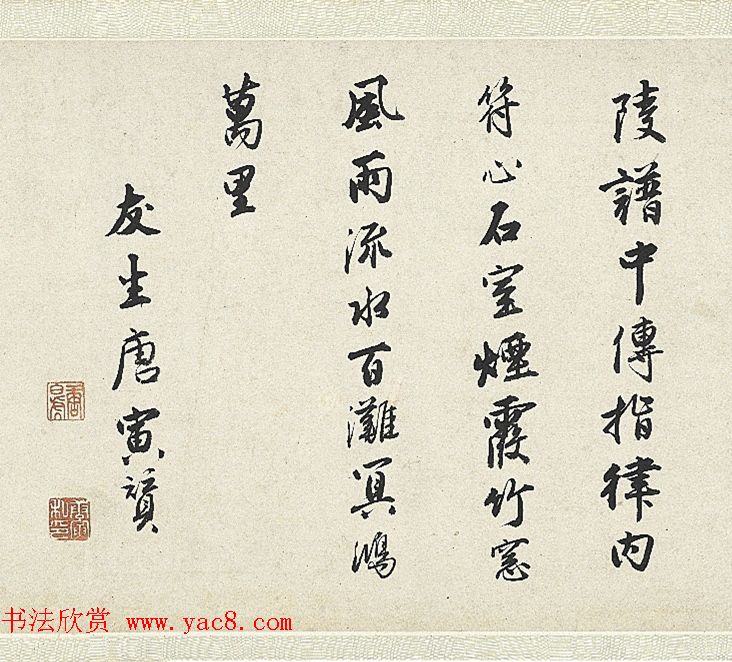 陵譜中傳指律內
符心石室煙霞竹窓
風雨流水百灘冥鴻
萬里
友生唐寅贊
书法欣赏 www.yac8.com